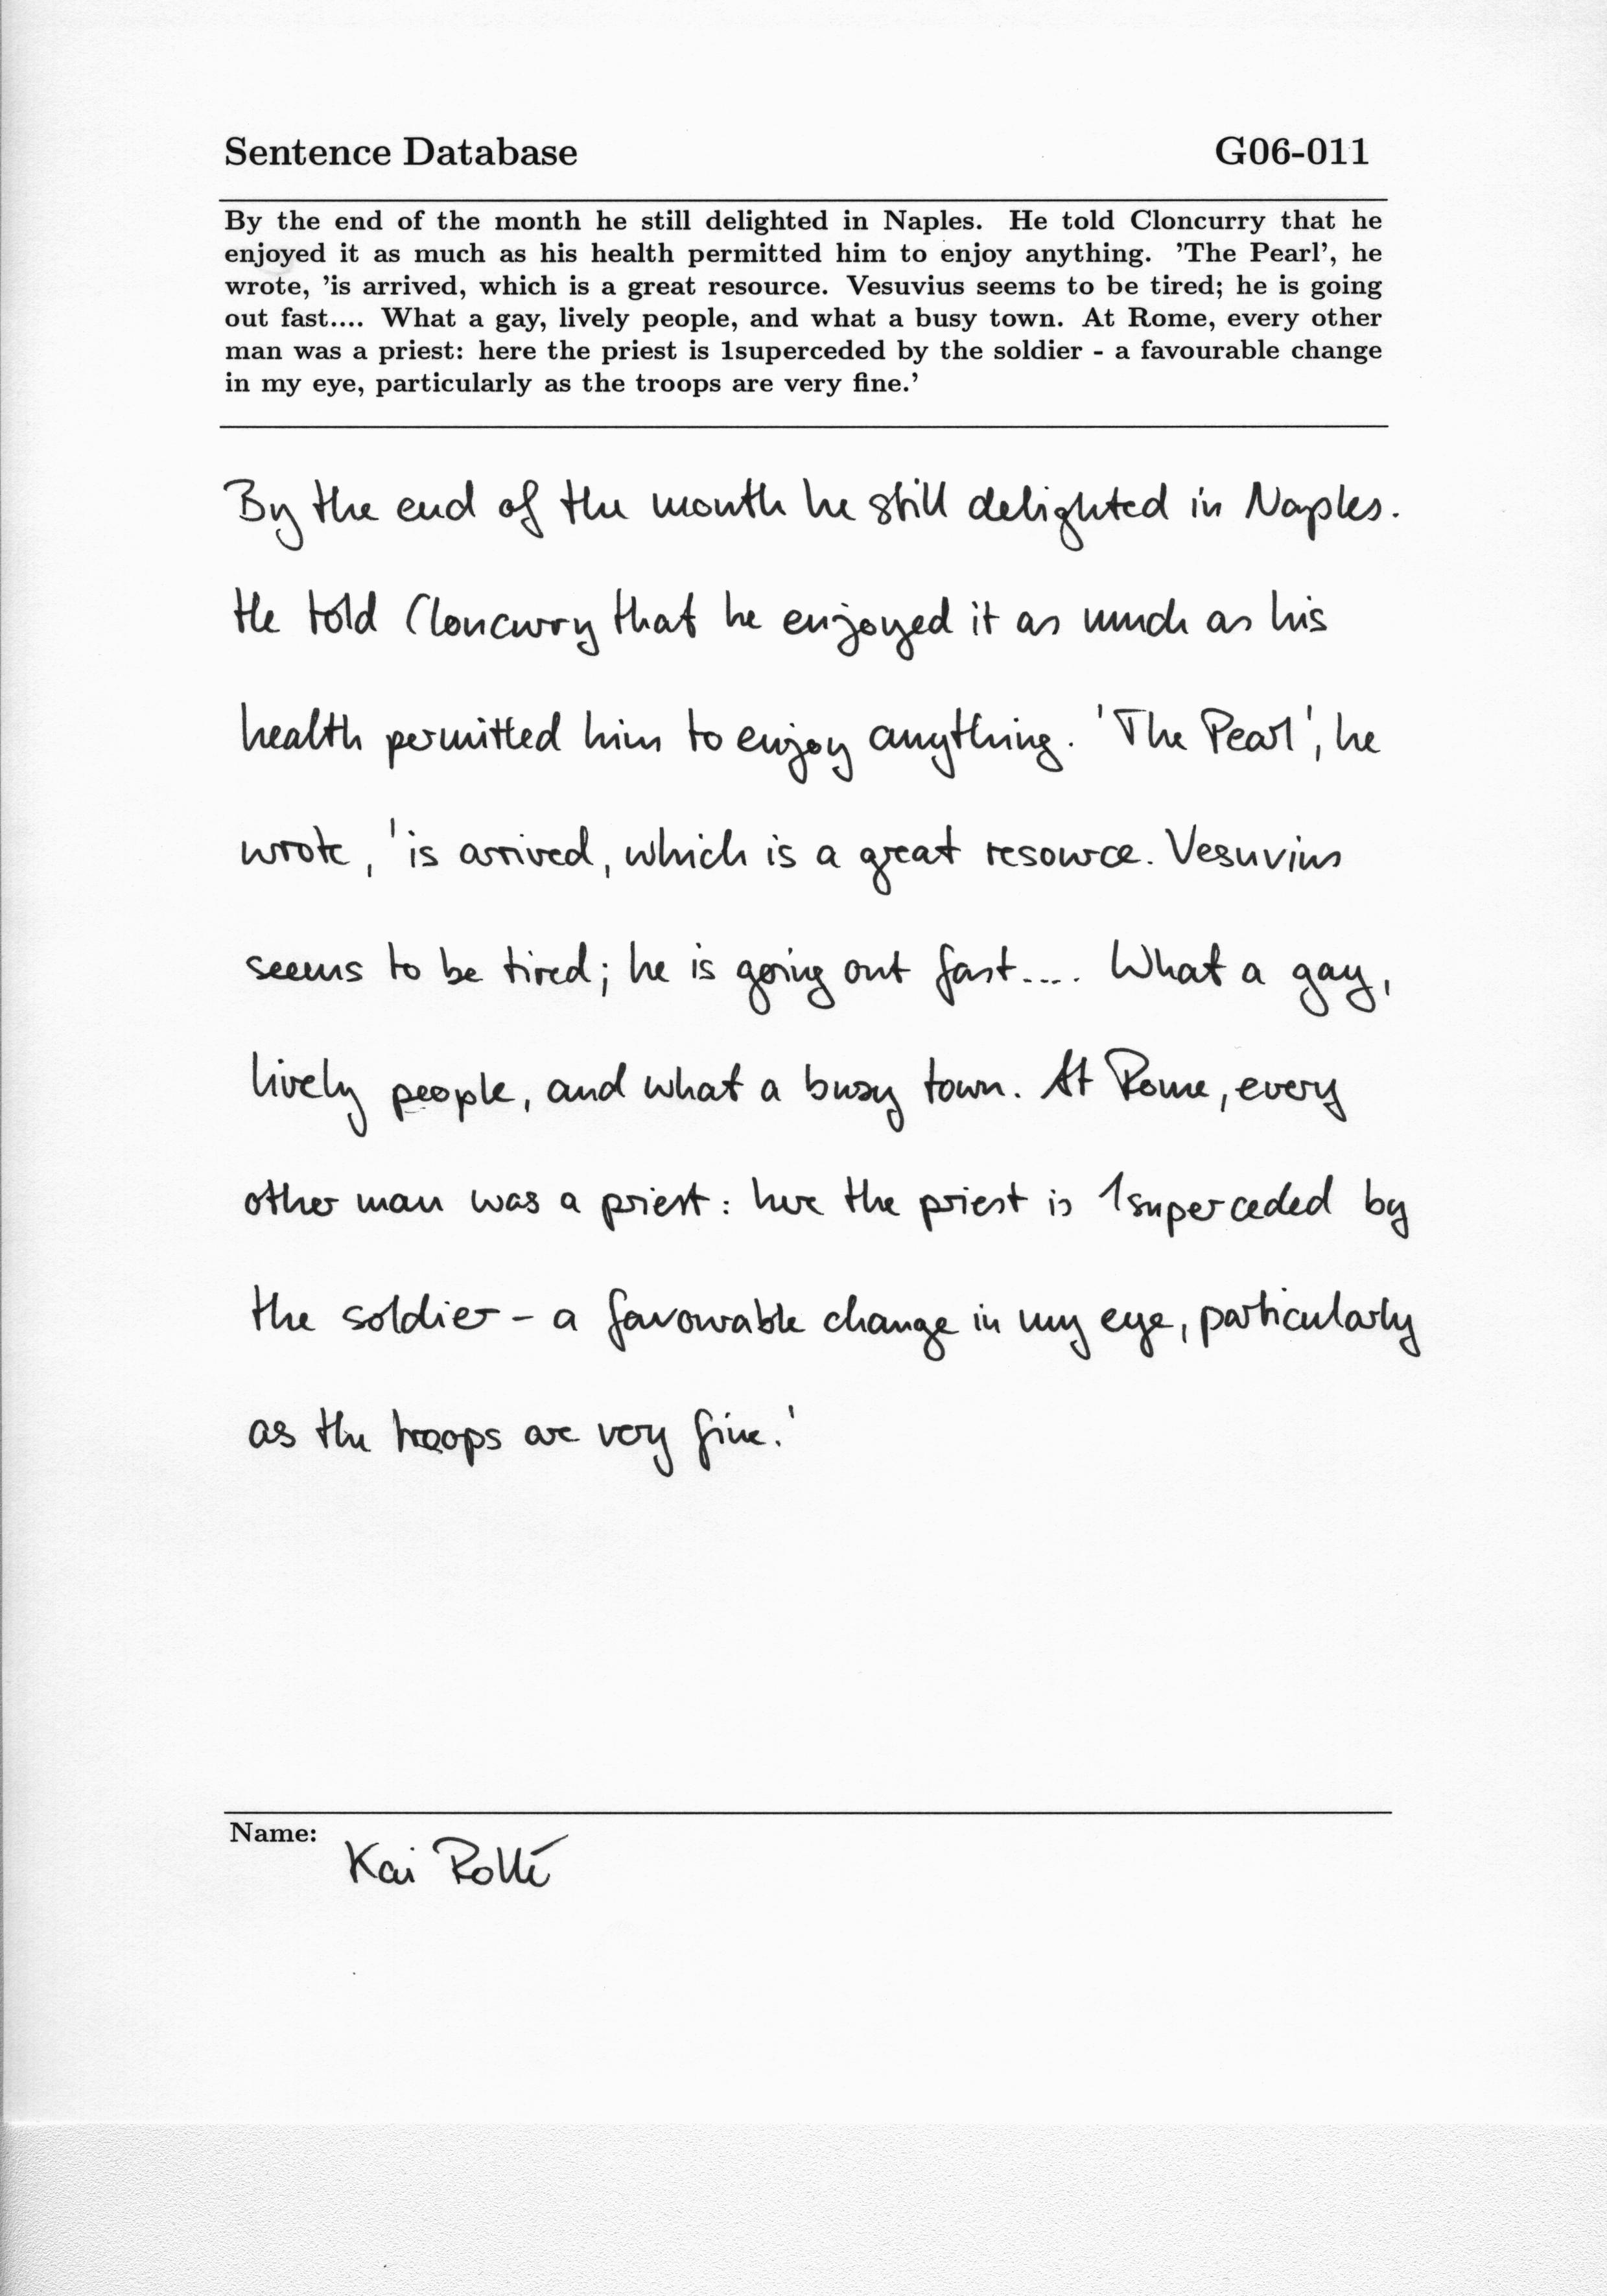 Sentence Database G06-011
By the end of the month he still delighted in Naples. He told Cloncurry that he
enjoyed it as much as his health permitted him to enjoy anything. 'The Pearl', he
wrote, 'is arrived, which is a great resource. Vesuvius seems to be tired; he is going
out fast.... What a gay, lively people, and what a busy town. At Rome, every other
man was a priest: here the priest is 1superceded by the soldier - a favourable change
in my eye, particularly as the troops are very fine.'
By the end of the month he still delighted in Naples.
He told Cloncurry that he enjoyed it as much as his
health permitted him to enjoy anything. 'The Pearl', he
wrote, 'is arrived, which is a great resource. Vesuvius
seems to be tired; he is going out fast.... What a gay,
lively people, and what a busy town. At Rome, every
other man was a priest: here the priest is 1superceded by
the soldier - a favourable change in my eye, particularly
as the troops are very fine.'
Name:
Kai Rollé